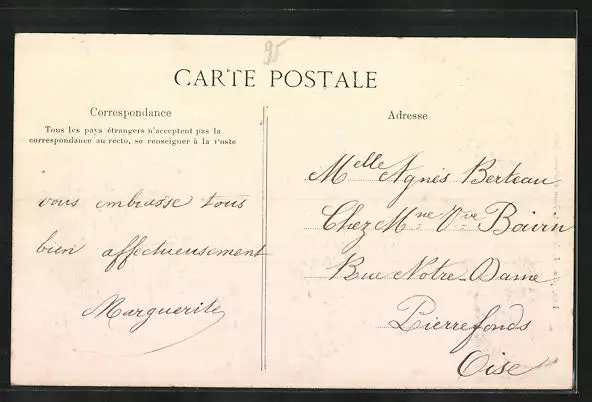 CARTE POSTALE
Correspondance
Tous les pays étrangers n'acceptent pas la
correspondance au recto, se renseigner à la Poste
vous embrasse tous
bien affectueusement
Marguerite
Adresse
Melle Agnès Berteau
Chez Mme Vve Boivin
Rue Notre-Dame
Pierrefonds
Oise